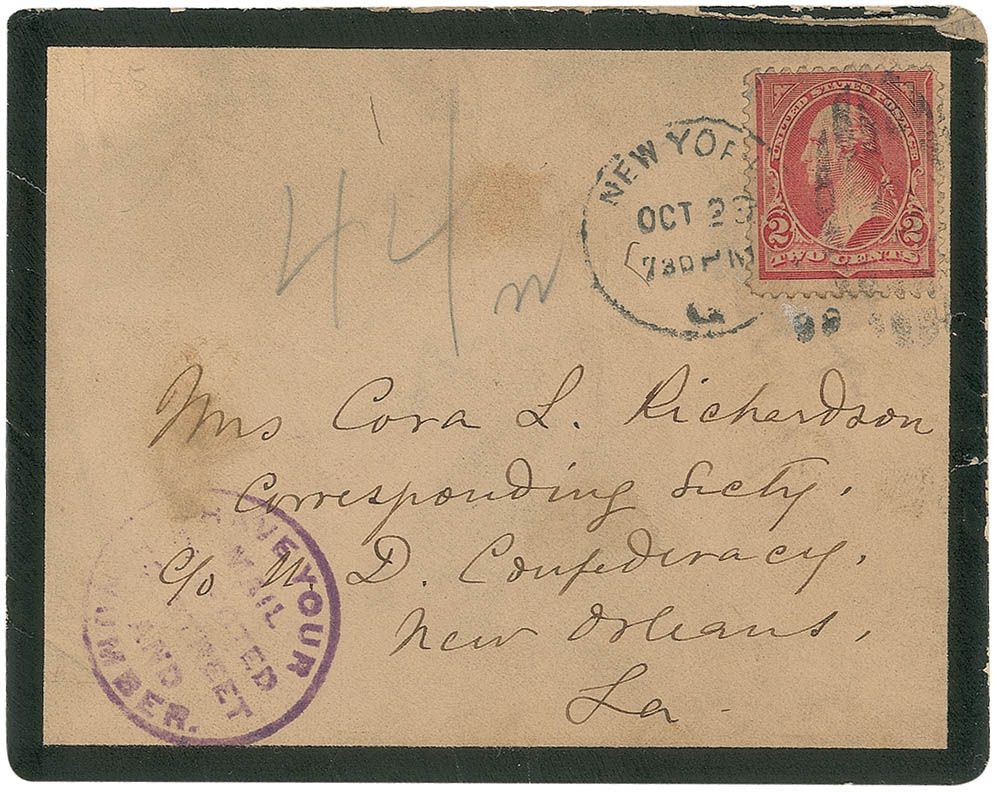 NEW YOR
OCT 23
730 PM
98
UNITED STATES POSTAGE
2 2
TWO CENTS
44
Mrs Cora L. Richardson
Corresponding Secty.
c/o U. D. Confederacy,
New Orleans,
La.
HAVE YOUR
MAIL
STREET
AND
NUMBER.